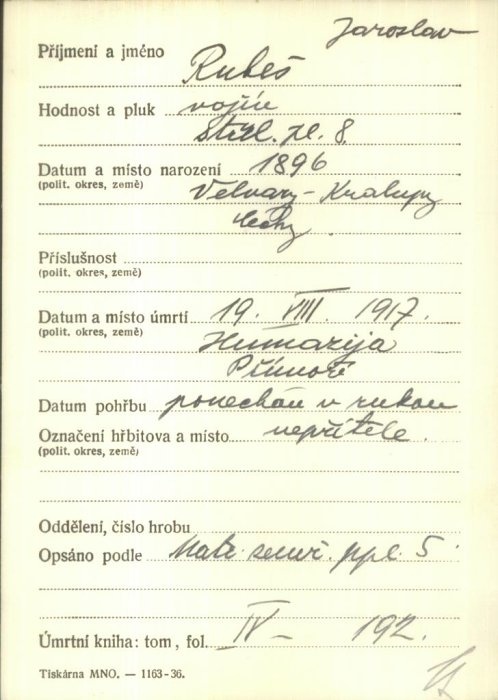 Jaroslav
Příjmení a jméno Rubeš
Hodnost a pluk vojín
Střel. pl. 8.
Datum a místo narození 1896
(polit. okres, země) Velvary - Kralupy
Čechy.
Příslušnost
(polit. okres, země)
Datum a místo úmrtí 19. VIII. 1917.
(polit. okres, země) Humarija
Přímoří
Datum pohřbu ponechán v rukou
Označení hřbitova a místo nepřítele.
(polit. okres, země)
Oddělení, číslo hrobu
Opsáno podle ppl. 5
Úmrtní kniha: tom, fol. IV - 192.
Tiskárna MNO. — 1163-36.